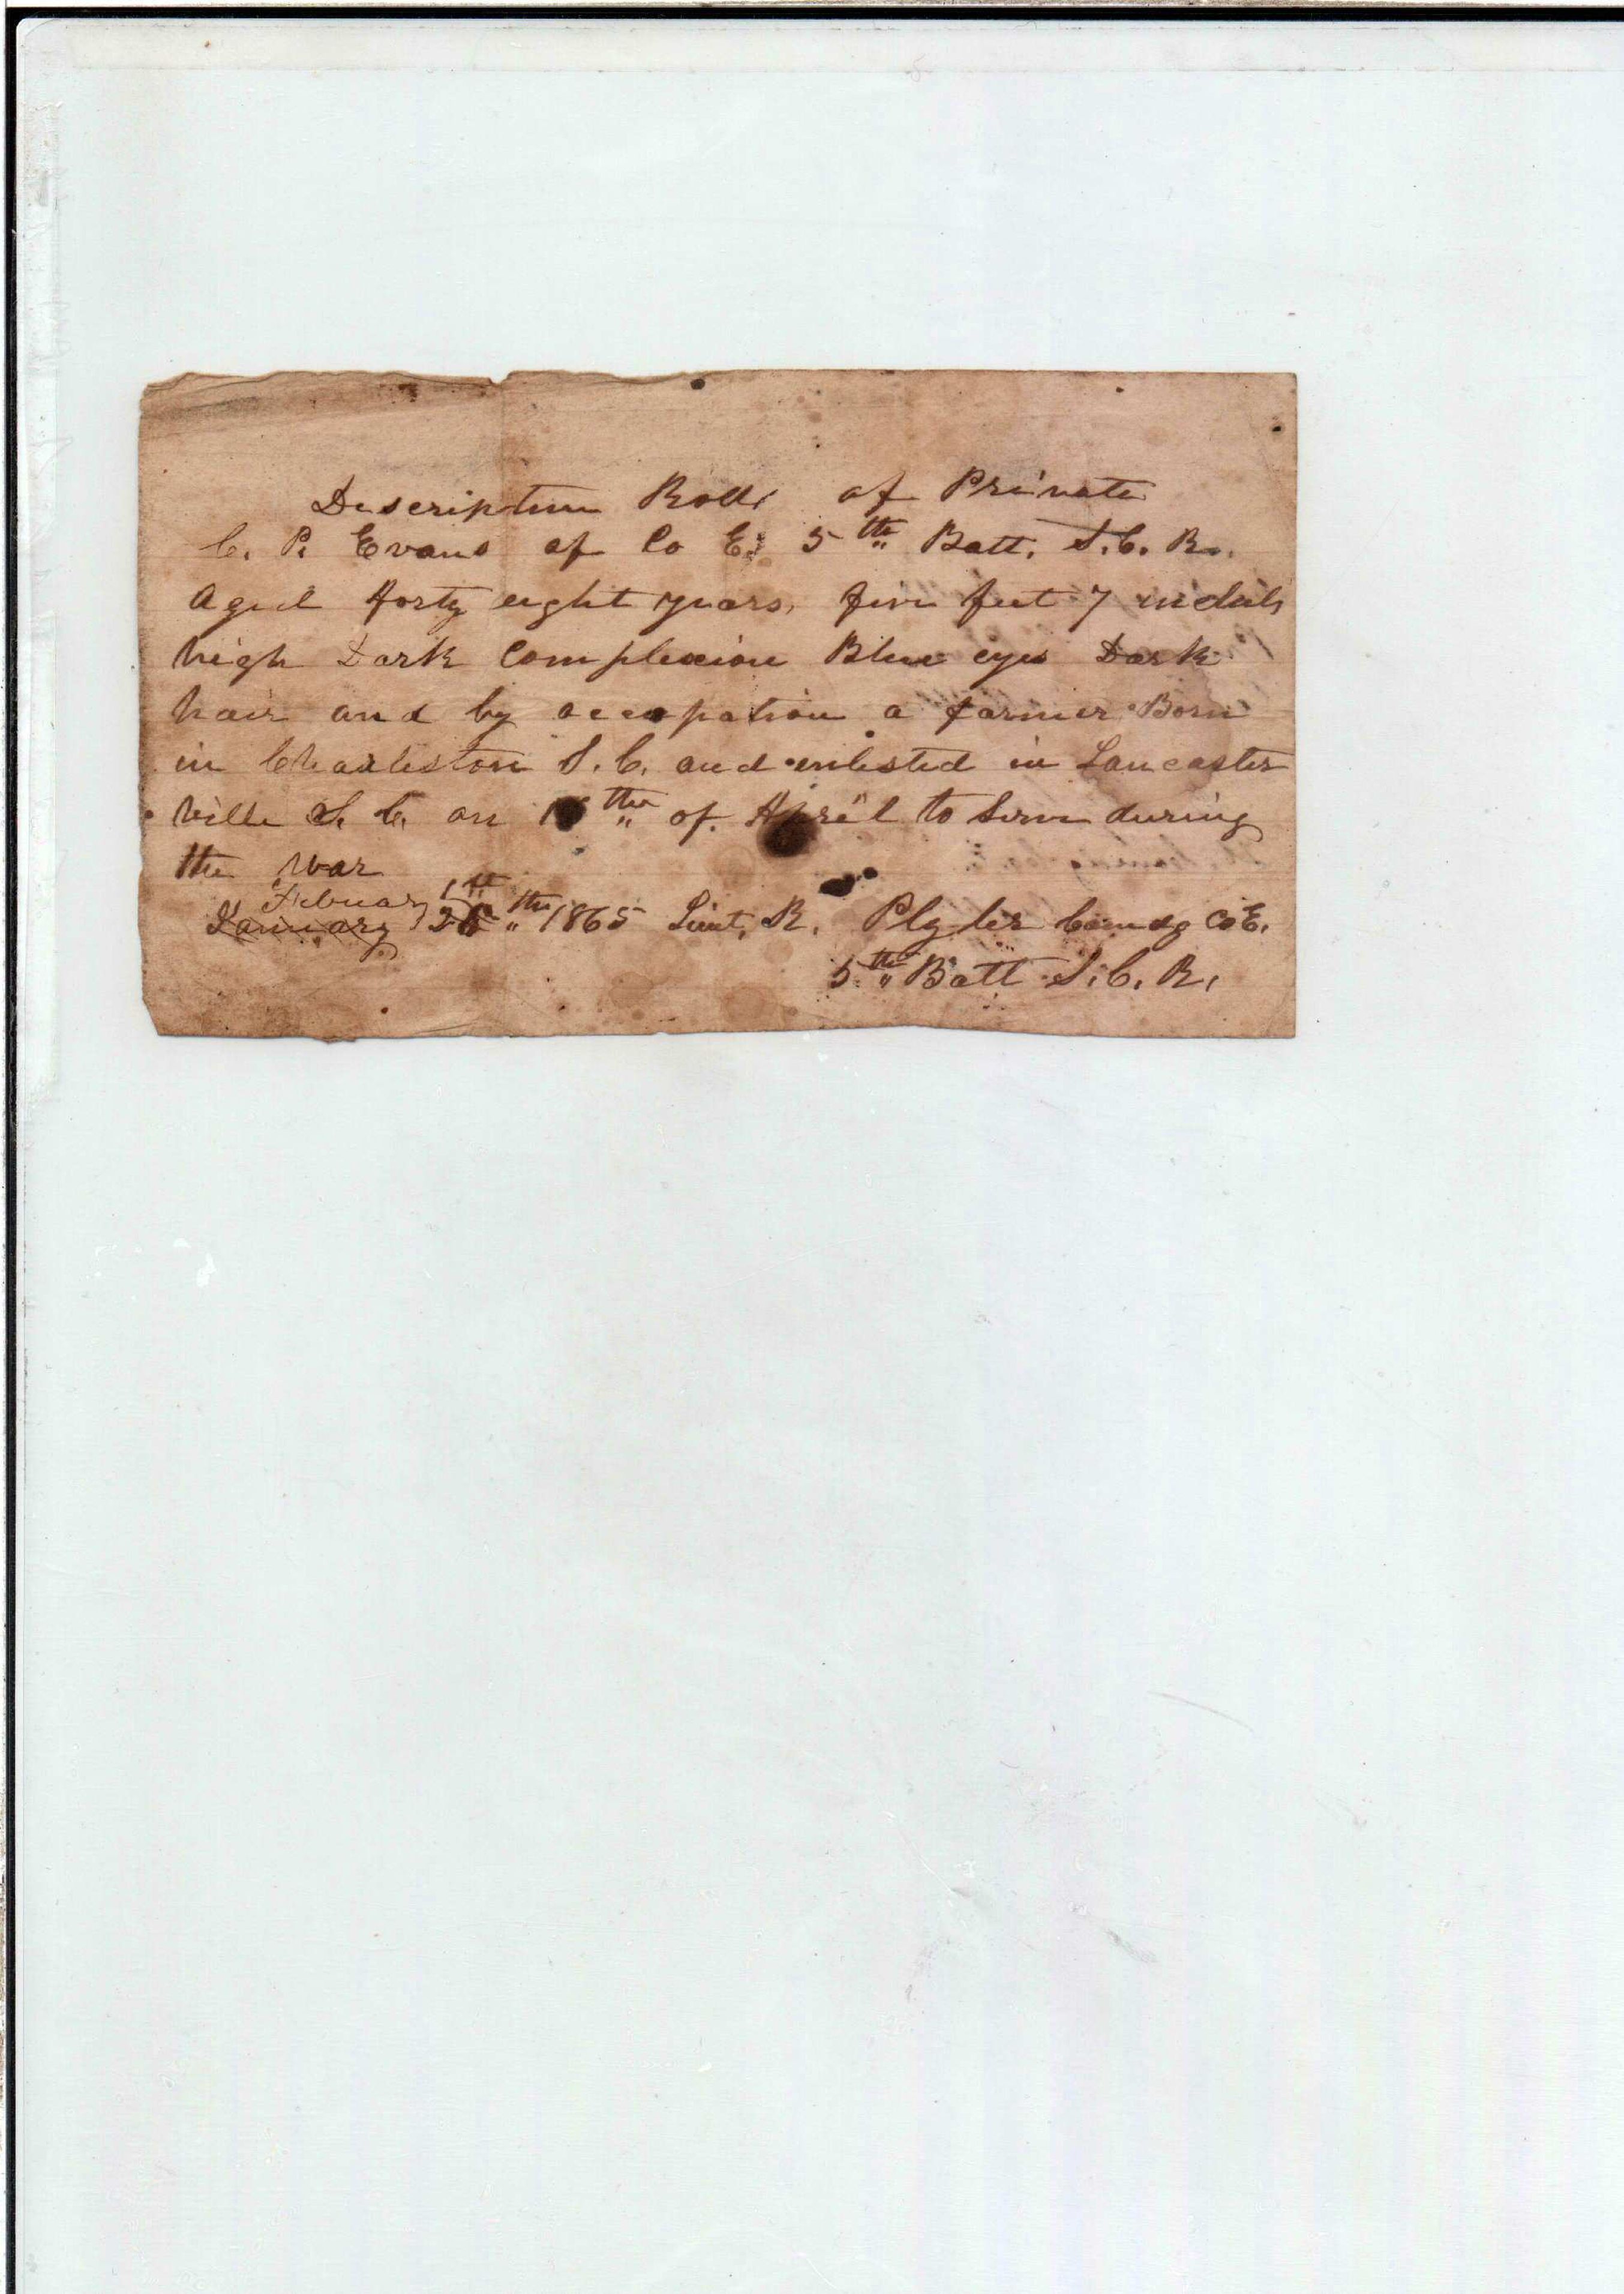 Descriptive Roll of Private
C. P. Evans of Co E. 5th Batt. S. C. R.
Aged forty eight years, five feet 7 inches
high Dark Complexion Blue eyes Dark
hair and by occopation a farmer Born
in Charleston S. C. and enlisted in Lancaster
ville S. C. on th of April to Serve during
the war
Febuary 1st
January th 1865 Lieut. R. Plyler Comdg Co E.
5th Batt S. C. R.